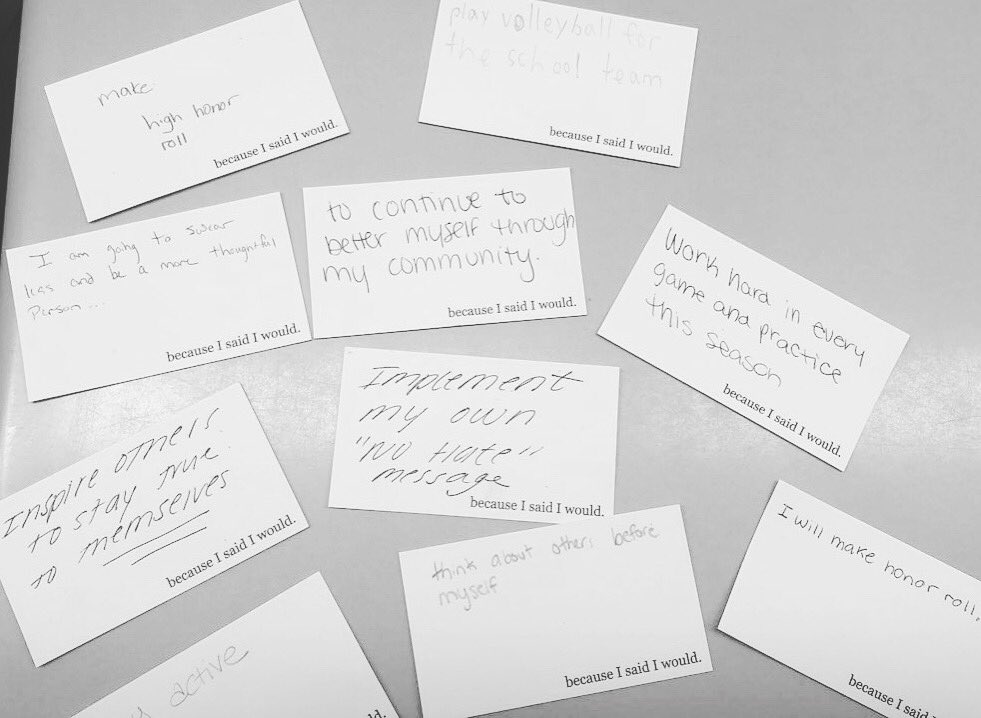 make
high honor
roll
because I said I would.
play volleyball for
the school team
because I said I would.
I am going to swear
less and be a more thoughtful
person...
because I said I would.
to continue to
better myself through
my community.
because I said I would.
Work hard in every
game and practice
this season
because I said I would.
Inspire others
to stay true
to themselves
because I said I would.
Implement
my own
"No Hate"
message
because I said I would.
I will make honor roll,
because I said
active
think about others before
myself
because I said I would.